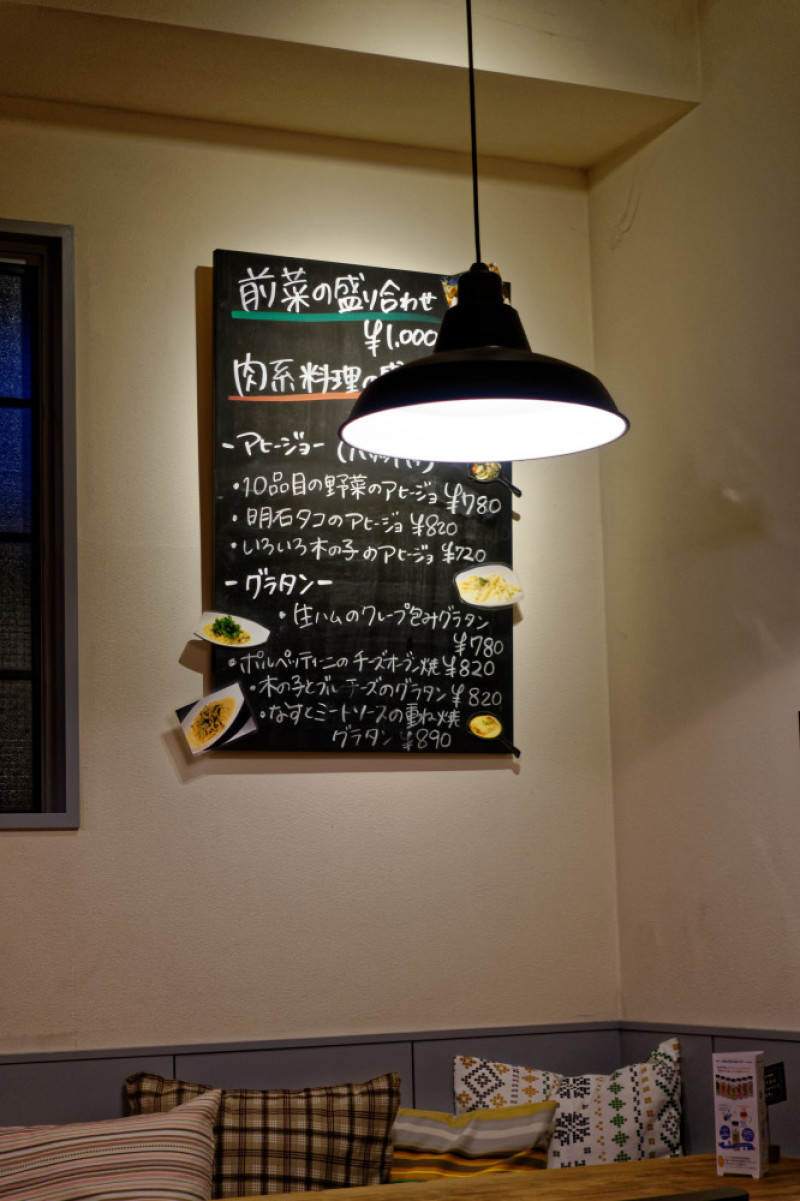 前菜の盛り合わせ
¥1.000
肉系料理の
-アヒージョー
・10品目の野菜のアヒージョ ¥780
・明石タコのアヒージョ ¥820
・いろいろ木の子のアヒージョ ¥720
-グラタン-
・生ハムのクレープ包みグラタン
¥780
・ポルペッティーニのチーズオーブン焼 ¥820
・木の子とブルーチーズのグラタン ¥820
・なすとミートソースの重ね焼
グラタン ¥890